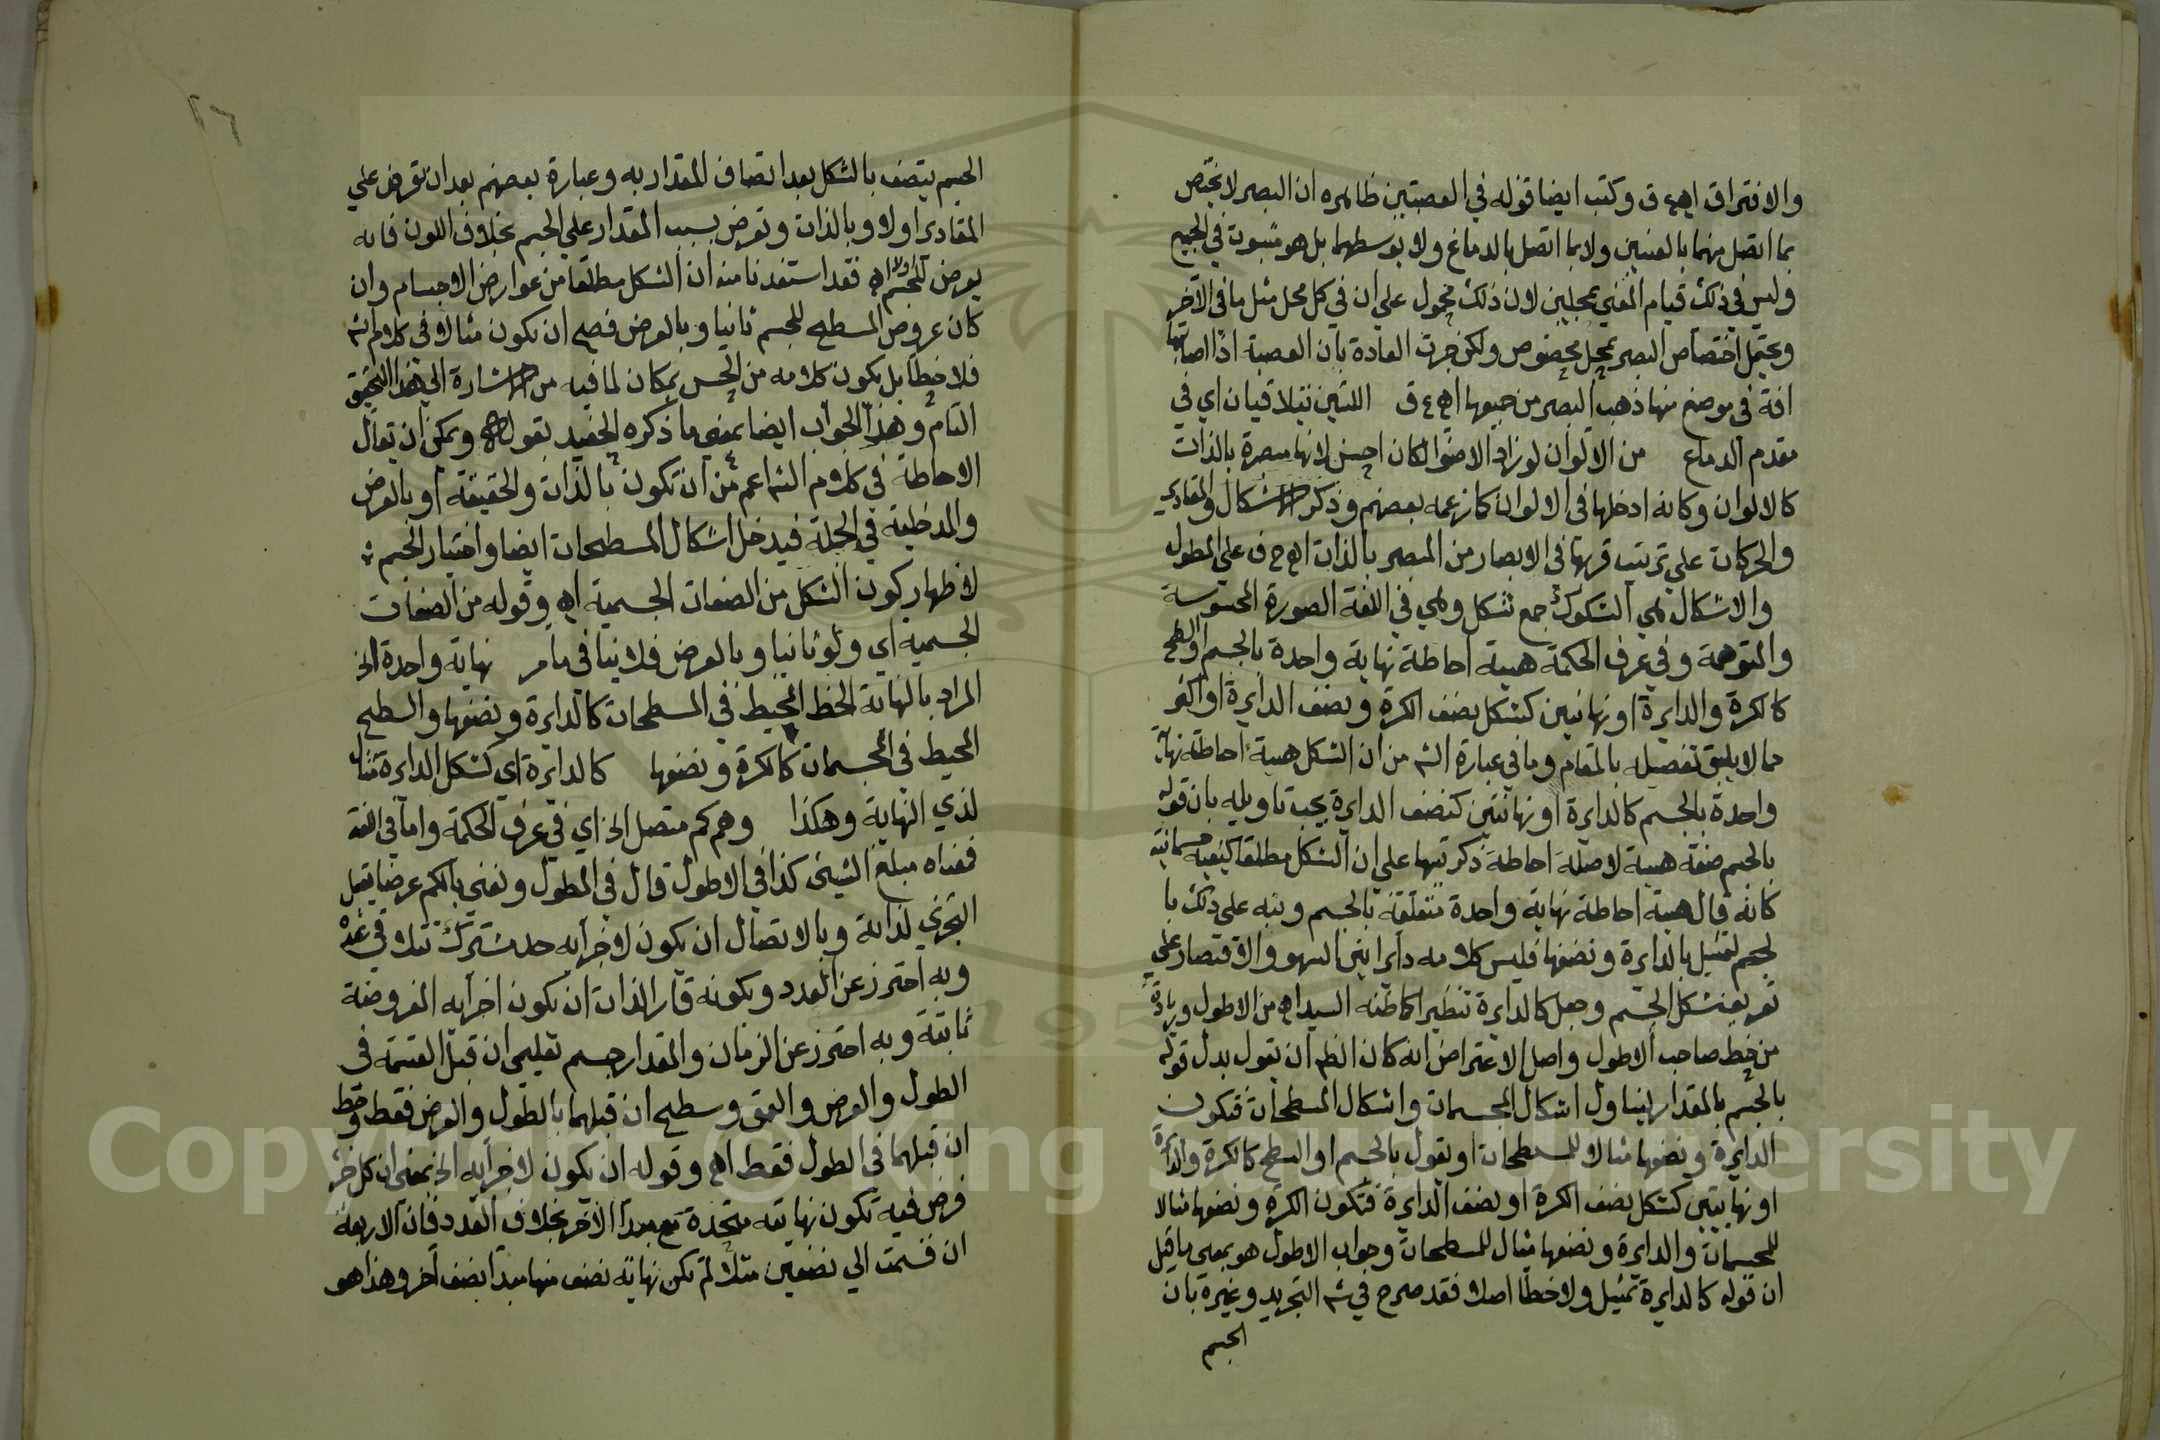 والافتراق اهـ ع ق وكتب ايضا قوله في العصبتين ظاهره ان البصر لا يختص
بما اتصل منهما بالعينين ولا بما اتصل بالدماغ ولا بوسطهما بل هو مبثوث في الجميع
وليس في ذلك قيام المعني بمحلين لان ذلك محمول علي ان في كل محل مثل ما في الآخر
ويحتمل اختصاص البصر بمحل مخصوص ولكن جرت العادة بان العصبة اذا اصابتها
افة في موضع منها ذهب البصر من جميعها اهـ ع ق اللتين تتلاقيان اي في
مقدم الدماغ من الالوان لو زاد الاضوا لكان احسن لانها مبصرة بالذات
كالالوان وكانه ادخلها في الالوان كما زعمه بعضهم وذكر الاشكال والمقادير
والحركات علي ترتيب قربها في الابصار من المبصر بالذات اهـ ح ف علي المطول
والاشكال هي الشكول جمع شكل وهي في اللغة الصورة المحسوسة
والمتوهمة وفي عرف الحكمة هيية احاطة نهاية واحدة بالجسم او السطح
كالكرة والدايرة او نهايتين كشكل نصف الكرة ونصف الدايرة او اكثر
مما لا يليق تفصيله بالمقام وما في عبارة الشـ من ان الشكل هيية احاطة نهاية
واحدة بالجسم كالدايرة او نهايتين كنصف الدايرة يجب تاويله بان قوله
بالجسم صفة هيية لا صلة احاطة ذكر تنبيها علي ان الشكل مطلقا كيفية جسمانية
كانه قال هيية احاطة نهاية واحدة متعلقة بالجسم ونبه علي ذلك با
لجسم لتمثيل بالدايرة ونصفها فليس كلامه دايرا بين السهو والاقتصار علي
تعريف شكل الجسم وجعل كالدايرة تنظيرا كما ظنه السيد اهـ من الاطول وزيادة
من خط صاحب الاطول واصل الاعتراض انه كان الظـ ان يقول بدل قوله
بالجسم بالمقدار ليتناول اشكال المجسمات واشكال المسطحات فتكون
الدايرة ونصفها مثالا للمسطحات او يقول بالجسم او السطح كالكرة والدايرة
او نهايتين كشكل نصف الكرة او نصف الدايرة فتكون الكرة ونصفها مثالا
للمجسمات والدايرة ونصفها مثال للمسطحات وجواب الاطول هو بمعني ما قيل
ان قوله كالدايرة تمثيل ولا خطا اصلا فقد صرح في شـ التجريد وغيره بان
الجسم
٢٦
الجسم يتصف بالشكل بعد اتصاف المقدار به وعبارة بعضهم بعد ان تعرض علي
المقادير اولا وبالذات وتعرض بسبب المقدار علي الجسم بخلاف اللون فانه
يعرض للجسم اولا اهـ فقد استفدنا منه ان الشكل مطلقا من عوارض الاجسام وان
كان عروض المسطح للجسم ثانيا وبالعرض فصح ان يكون مثالا في كلام الشـ
فلا خطا بل يكون كلامه من الحسن بمكان لما فيه من الاشارة الي هذا التحقيق
التام وهذا الجواب ايضا بمعني ما ذكره الحفيد بقوله ويمكن ان يقال
الاحاطة في كلام الشـ اعم من ان تكون بالذات والحقيقة او بالعرض
والمدخلية في الجملة فيدخل اشكال المسطحات ايضا واختيار الجسم
لاظهار كون الشكل من الصفات الجسمية اهـ وقوله من الصفات
الجسمية اي ولو ثانيا وبالعرض فلا ينافي ما مر نهاية واحدة الخ
المراد بالنهاية الخط المحيط في المسطحات كالدايرة ونصفها والسطح
المحيط في المجسمات كالكرة ونصفها كالدايرة اي كشكل الدايرة مثال
لذي النهاية وهكذا وهم كم متصل الخ اي في عرف الحكمة واما في اللغة
فمعناه مبلغ الشيئ كذا في الاطول قال في المطول ونعني بالكم عرضا يقبل
التجزي لذاته وبالاتصال ان يكون لاجزآيه حد مشترك تتلاقي عنده
وبه احترز عن العدد وبكونه قار الذات ان يكون اجزآيه المفروضة
ثابتة وبه احترز عن الزمان والمقدار جسم تعليمي ان قبل القسمة في
الطول والعرض والعمق وسطح ان قبلهما بالطول والعرض فقط وخط
ان قبلهما في الطول فقط اهـ وقوله ان يكون لاجزآيه الخ بمعني ان كل جزء
فرض فيه تكون نهايته متحدة مع مبدأ الآخر بخلاف العدد فان الاربعة
ان قسمت الي نصفين مثلا لم تكن نهاية نصف منها مبدأ نصف آخر وهذا هو
Copyright © King Saud University
195